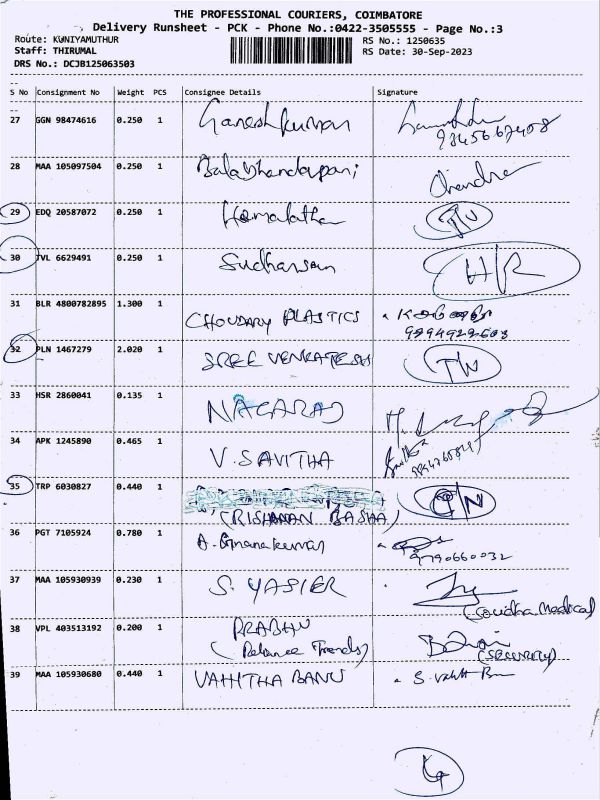 THE PROFESSIONAL COURIERS, COIMBATORE
Delivery Runsheet - PCK - Phone No.:0422-3505555 - Page No.:3
Route: KUNIYAMUTHUR
RS No.: 1250635
Staff: THIRUMAL
RS Date: 30-Sep-2023
DRS No.: DCJB125063503
S No Consignment No Weight PCS Consignee Details Signature
27 GGN 98474616 0.250 1 Ganeshkumar
28 MAA 105097504 0.250 1 Balabhandapani Chandra
29 EDQ 20587072 0.250 1 Hemalatha
30 TVL 6629491 0.250 1 Sudharsan H/R
31 BLR 4800782895 1.300 1 CHOUDARY PLASTICS
32 PLN 1467279 2.020 1 SREE VENKATESH
33 HSR 2860041 0.135 1 NAGARAJ
34 APK 1245890 0.465 1 V. SAVITHA
35 TRP 6030827 0.440 1
(RISHANAN BASHA)
36 PGT 7105924 0.780 1 A. Gnanakumar
9790660032
37 MAA 105930939 0.230 1 S. YASIER
38 VPL 403513192 0.200 1 PRABHU
(Reliance Trends) (Security)
39 MAA 105930680 0.440 1 VAHITHA BANU